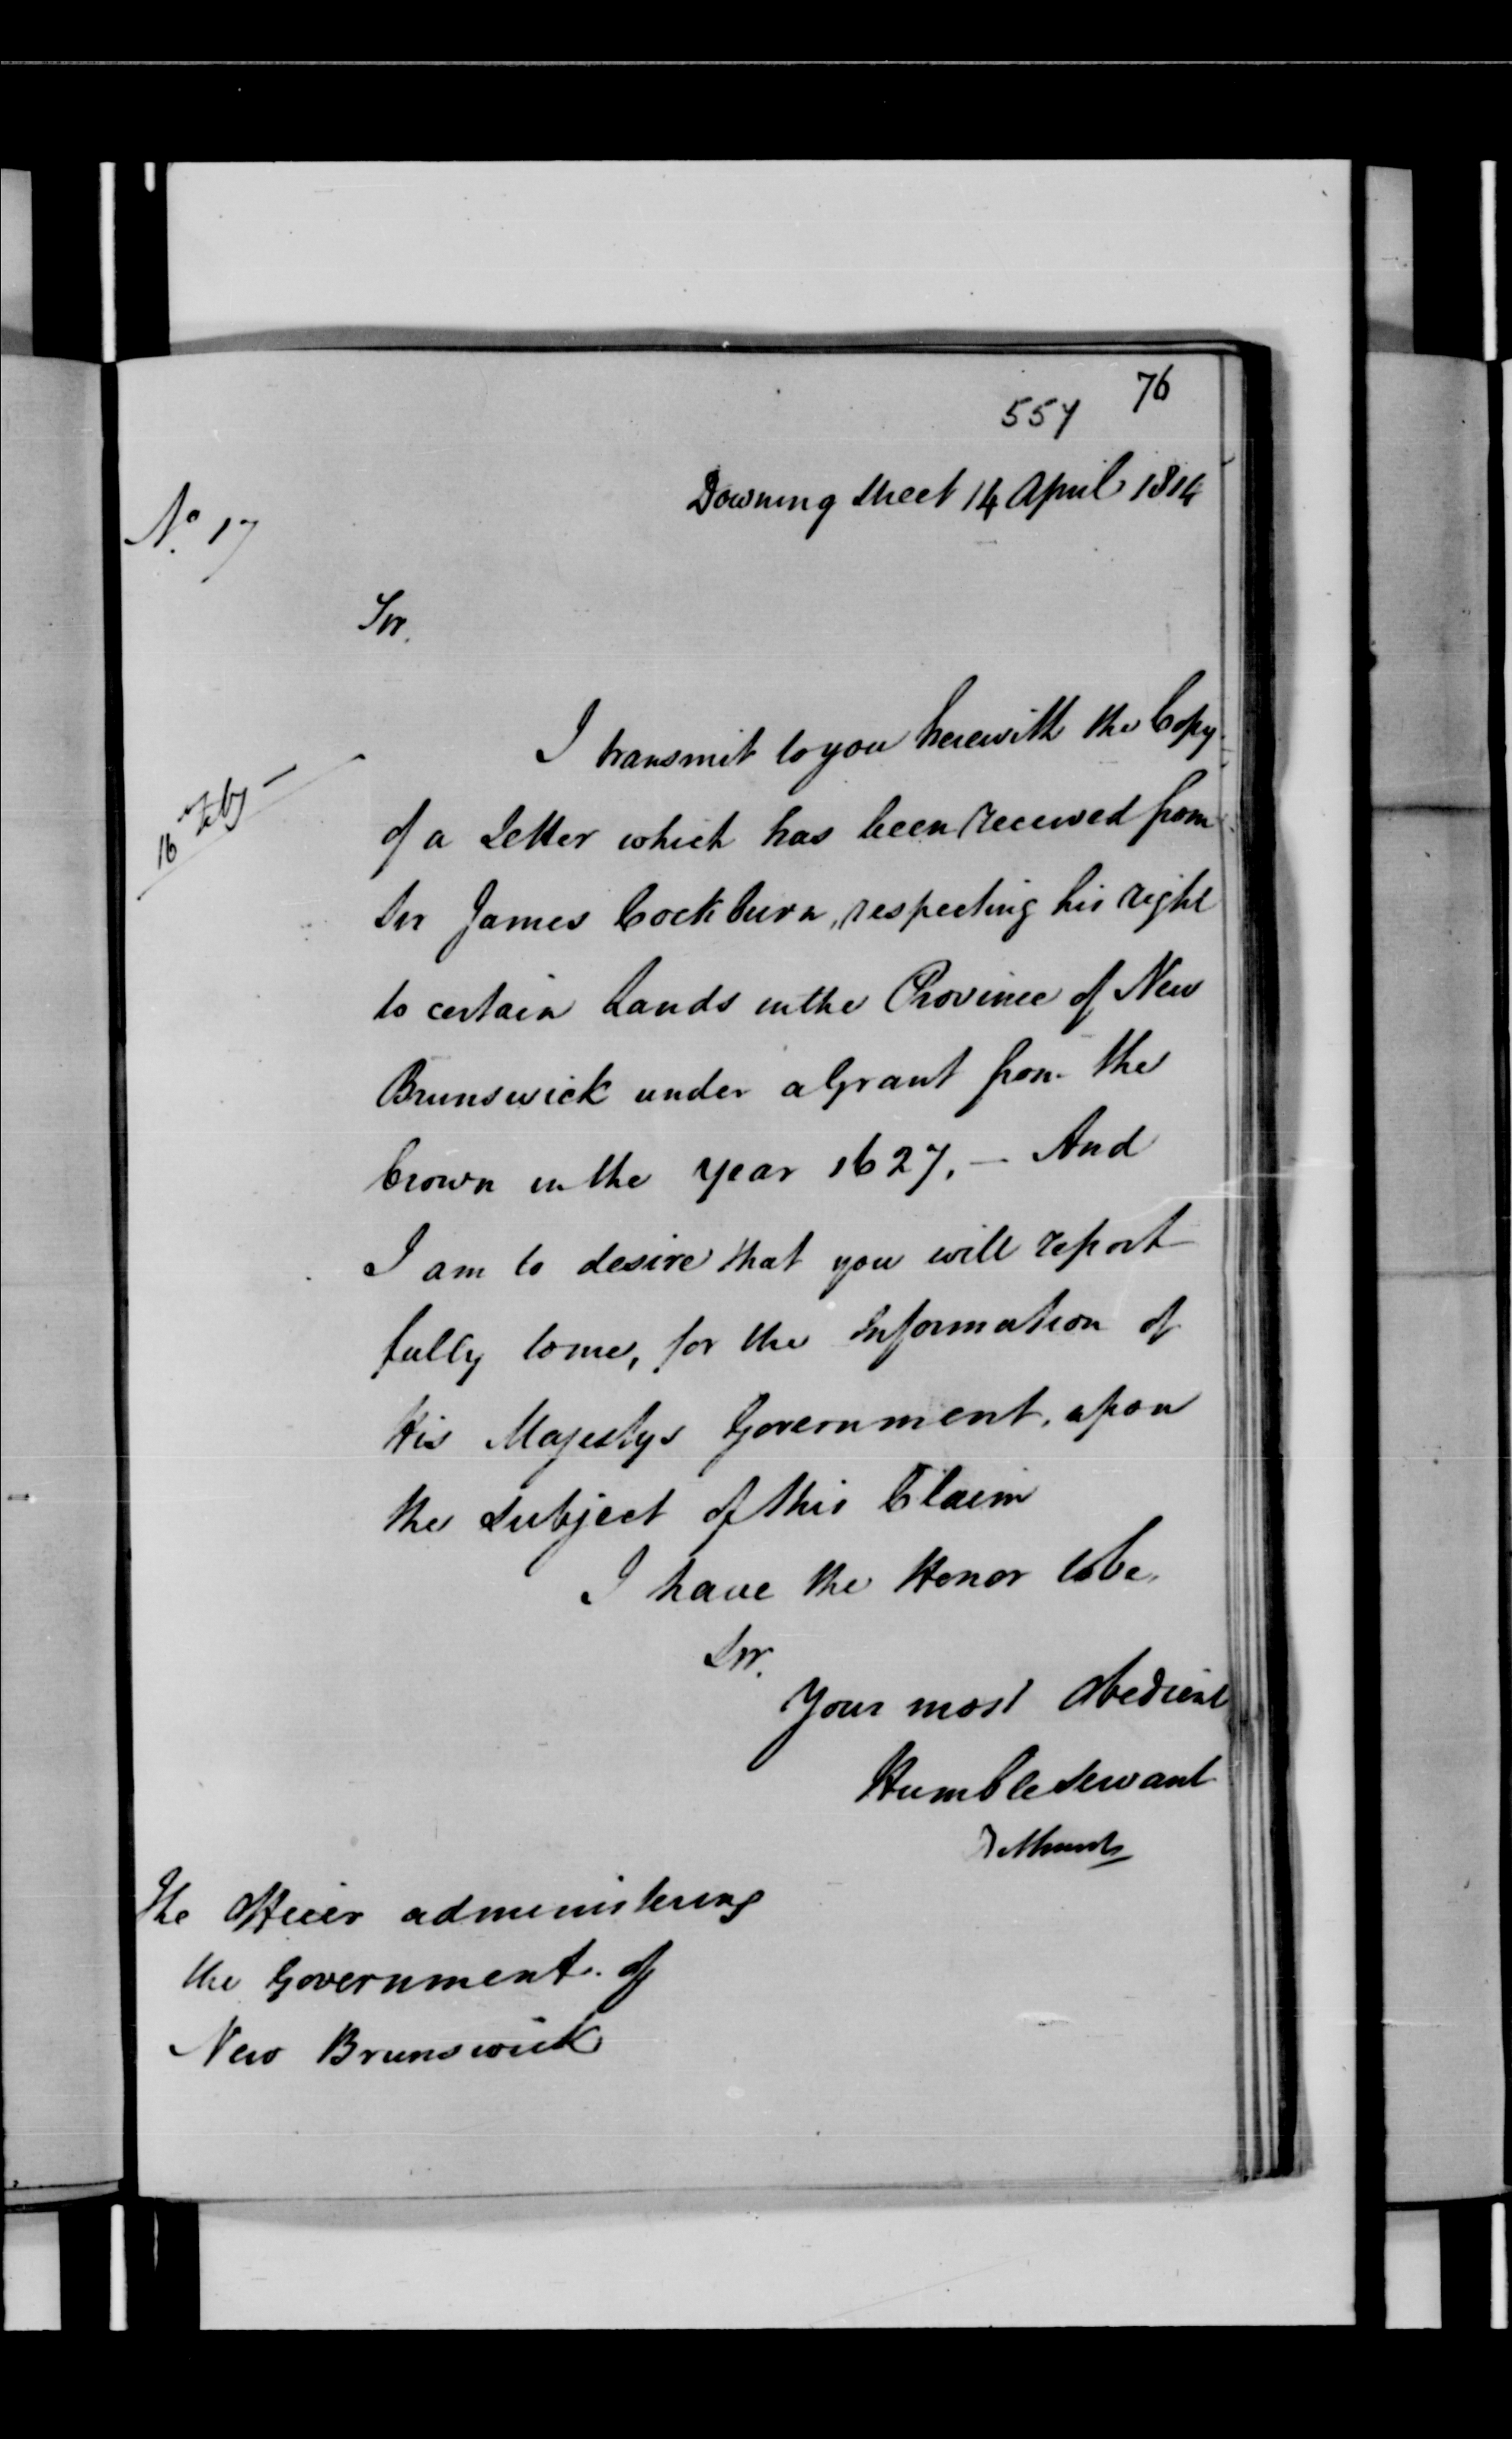 76
557
Downing Street 14 April 1814
No. 17
Sir.
I transmit to you herewith the Copy
16 Feby
of a Letter which has been received from
Sir James Cockburn, respecting his right
to certain Lands in the Province of New
Brunswick under a Grant from the
Crown in the year 1627. — And
I am to desire that you will report
fully to me, for the Information of
His Majestys Government, upon
the Subject of this Claim
I have the Honor to be,
Sir.
Your most Obedient
Humble Servant
Bathurst
The Officer administering
the Government of
New Brunswick